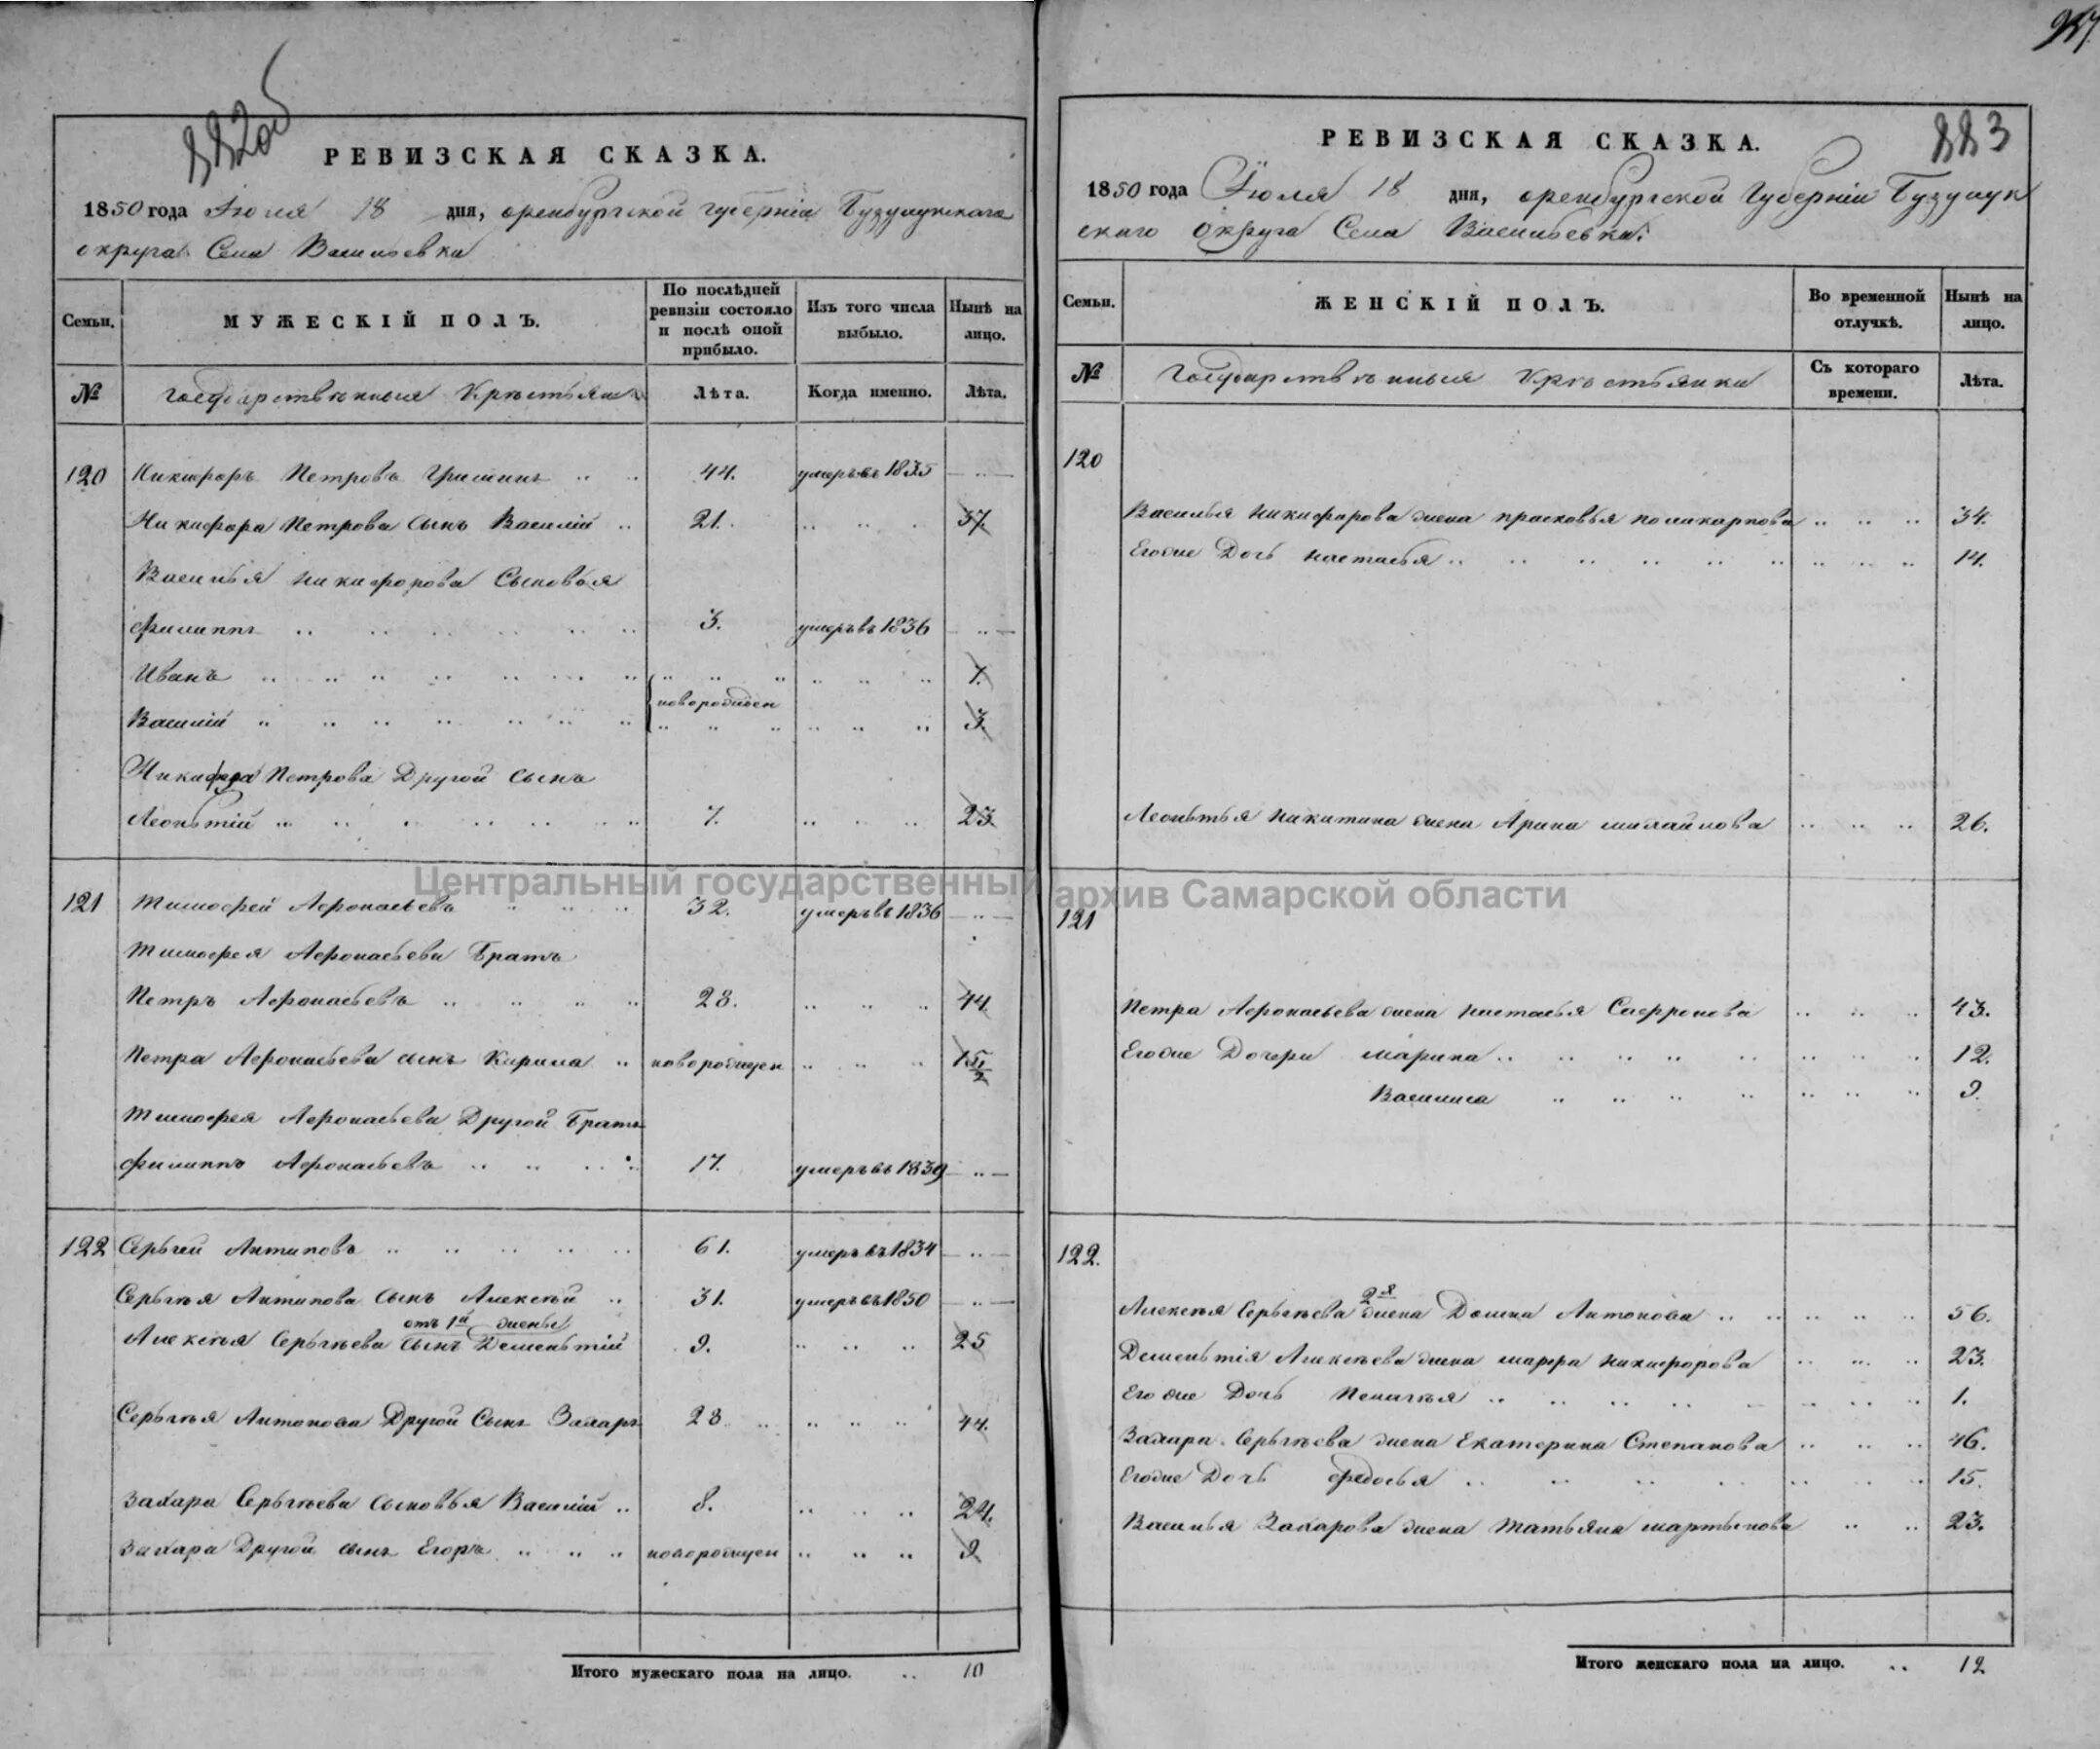 882об
РЕВИЗСКАЯ СКАЗКА.
1850 года Июля 18 дня, оренбургской губерніи Бузулукскаго
округа Села Васильевки
Семьи.
МУЖЕСКІЙ ПОЛЪ.
По послѣдней ревизіи состояло и послѣ оной прибыло.
Изъ того числа выбыло.
Нынѣ на лицо.
№
Государственныя Крѣстьяне
Лѣта.
Когда именно.
Лѣта.
120 Никифоръ Петровъ Гришинъ 44. умеръ въ 1835
Никифора Петрова Сынъ Василій 21. 37.
Василья Никифорова Сыновья
Филиппъ 3. умеръ въ 1836
Иванъ 7.
новорожден
Василій 3.
Никифора Петрова Другой Сынъ
Леоньтій 7. 23
121 Тимофей Афонасьевъ 32. умеръ въ 1836
Тимофея Афонасьева Братъ
Петръ Афонасьевъ 28. 44.
Петра Афонасьева сынъ Кирила новорожден 1 1/2
Тимофея Афонасьева Другой Братъ
Филиппъ Афонасьевъ 17. умеръ въ 1839
122 Серьгей Антиповъ 61. умеръ въ 1834
Серьгѣя Антипова Сынъ Алексѣй 31. умеръ въ 1850
отъ 1й жены
Алексѣя Серьгѣева Сынъ Деменьтій 9. 25
Серьгѣя Антонова Другой Сынъ Захаръ 28 44.
Захара Серьгѣева Сыновья Василій 8. 24.
Захара Другой сынъ Егоръ новорожден 9.
Итого мужескаго пола на лицо. 10
883
РЕВИЗСКАЯ СКАЗКА.
1850 года Іюля 18 дня, оренбургской Губерніи Бузулук
скаго Округа Села Васильевки.
Семьи.
ЖЕНСКІЙ ПОЛЪ.
Во временной отлучкѣ.
Нынѣ на лицо.
№
Государственныя Крѣстьянки
Съ котораго времени.
Лѣта.
120
Василья Никифарова жена Прасковья Поликарпова 34.
Егоже Дочь Настасья 14.
Леоньтья Никитина жена Арина Михайлова 26.
121
Петра Афонасьева жена Настасья Сафронова 43.
Егоже Дочери Марина 12.
Василиса 9.
122.
2я
Алексѣя Серьгѣева жена Домна Антонова 56.
Деменьтія Алексѣева жена Марфа Никифорова 23.
Егоже Дочь Пелагѣя 1.
Захара Серьгѣева жена Екатерина Степанова 46.
Егоже Дочь Федосья 15.
Василья Захарова жена Татьяна Мартынова 23.
Итого женскаго пола на лицо. 12
Центральный государственный архив Самарской области